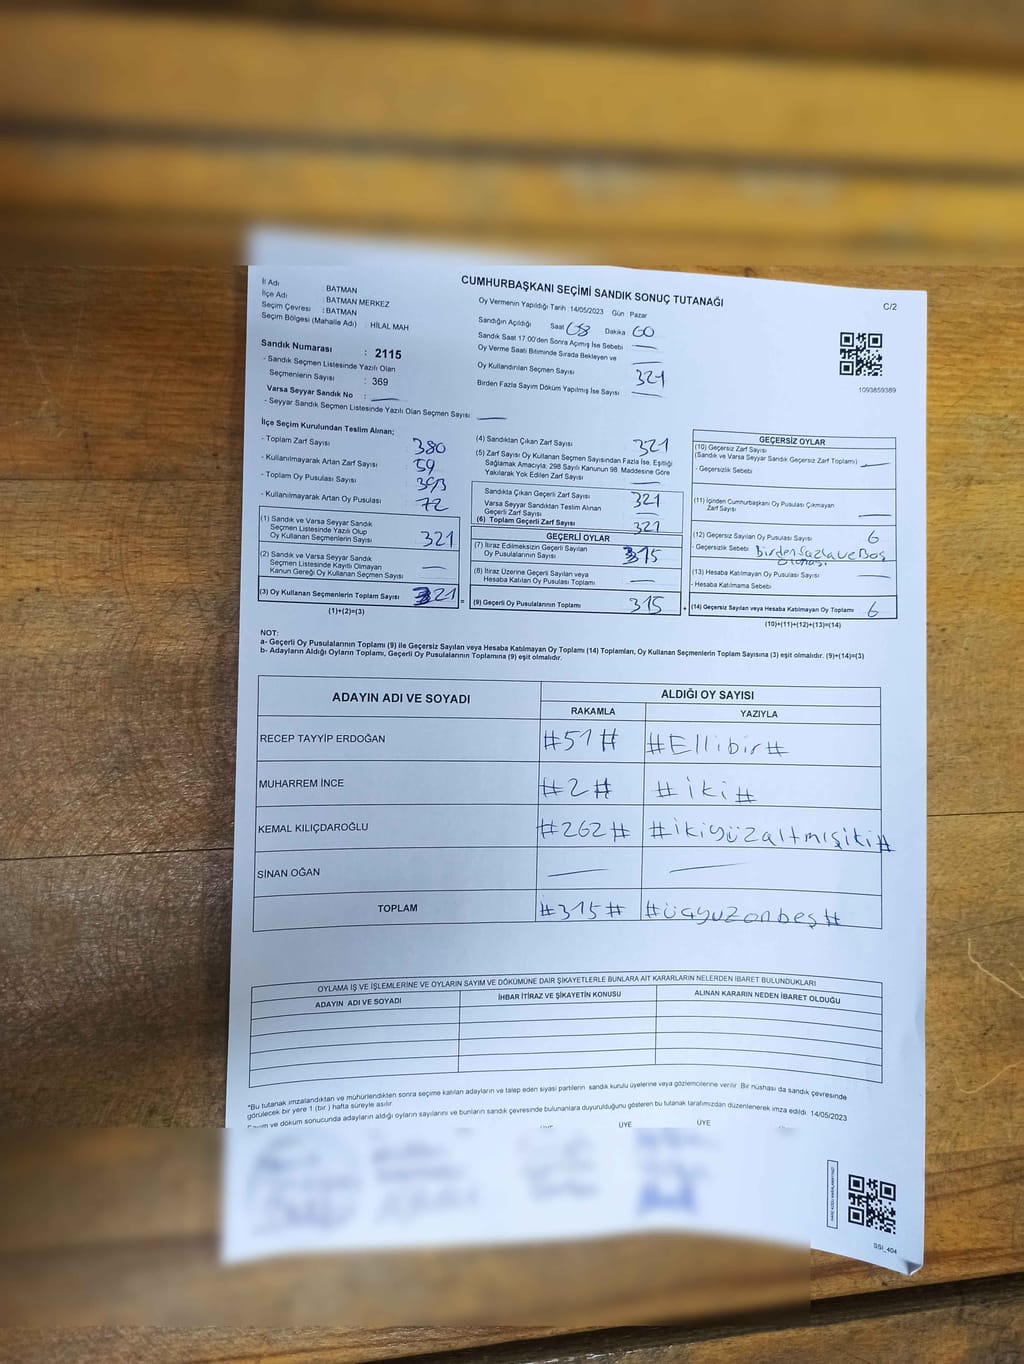 CUMHURBAŞKANI SEÇİMİ SANDIK SONUÇ TUTANAĞI
C/2
İl Adı : BATMAN
İlçe Adı : BATMAN MERKEZ
Seçim Çevresi : BATMAN
Seçim Bölgesi (Mahalle Adı) : HİLAL MAH
Sandık Numarası : 2115
- Sandık Seçmen Listesinde Yazılı Olan
Seçmenlerin Sayısı : 369
Varsa Seyyar Sandık No :
- Seyyar Sandık Seçmen Listesinde Yazılı Olan Seçmen Sayısı :
Oy Vermenin Yapıldığı Tarih :14/05/2023 Gün : Pazar
Sandığın Açıldığı Saat 08 Dakika 00
Sandık Saat 17.00'den Sonra Açılmış İse Sebebi
Oy Verme Saati Bitiminde Sırada Bekleyen ve
Oy Kullandırılan Seçmen Sayısı 321
Birden Fazla Sayım Döküm Yapılmış İse Sayısı
1093859389
İlçe Seçim Kurulundan Teslim Alınan;
- Toplam Zarf Sayısı 380
- Kullanılmayarak Artan Zarf Sayısı 59
- Toplam Oy Pusulası Sayısı 393
- Kullanılmayarak Artan Oy Pusulası 72
(1) Sandık ve Varsa Seyyar Sandık
Seçmen Listesinde Yazılı Olup
Oy Kullanan Seçmenlerin Sayısı 321
(2) Sandık ve Varsa Seyyar Sandık
Seçmen Listesinde Kayıtlı Olmayan
Kanun Gereği Oy Kullanan Seçmen Sayısı
(3) Oy Kullanan Seçmenlerin Toplam Sayısı 321 =
(1)+(2)=(3)
(4) Sandıktan Çıkan Zarf Sayısı 321
(5) Zarf Sayısı Oy Kullanan Seçmen Sayısından Fazla İse, Eşitliği
Sağlamak Amacıyla; 298 Sayılı Kanunun 98. Maddesine Göre
Yakılarak Yok Edilen Zarf Sayısı
Sandıkta Çıkan Geçerli Zarf Sayısı 321
Varsa Seyyar Sandıktan Teslim Alınan
Geçerli Zarf Sayısı
(6) Toplam Geçerli Zarf Sayısı 321
GEÇERLİ OYLAR
(7) İtiraz Edilmeksizin Geçerli Sayılan
Oy Pusulalarının Sayısı 315
(8) İtiraz Üzerine Geçerli Sayılan veya
Hesaba Katılan Oy Pusulası Toplamı
(9) Geçerli Oy Pusulalarının Toplamı 315 +
GEÇERSİZ OYLAR
(10) Geçersiz Zarf Sayısı
(Sandık ve Varsa Seyyar Sandık Geçersiz Zarf Toplamı)
- Geçersizlik Sebebi
(11) İçinden Cumhurbaşkanı Oy Pusulası Çıkmayan
Zarf Sayısı
(12) Geçersiz Sayılan Oy Pusulası Sayısı 6
- Geçersizlik Sebebi Birden fazla ve Boş
olması
(13) Hesaba Katılmayan Oy Pusulası Sayısı
- Hesaba Katılmama Sebebi
(14) Geçersiz Sayılan veya Hesaba Katılmayan Oy Toplamı 6
(10)+(11)+(12)+(13)=(14)
NOT:
a- Geçerli Oy Pusulalarının Toplamı (9) ile Geçersiz Sayılan veya Hesaba Katılmayan Oy Toplamı (14) Toplamları, Oy Kullanan Seçmenlerin Toplam Sayısına (3) eşit olmalıdır. (9)+(14)=(3)
b- Adayların Aldığı Oyların Toplamı, Geçerli Oy Pusulalarının Toplamına (9) eşit olmalıdır.
ADAYIN ADI VE SOYADI ALDIĞI OY SAYISI
RAKAMLA YAZIYLA
RECEP TAYYİP ERDOĞAN #51# #Ellibir#
MUHARREM İNCE #2# #iki#
KEMAL KILIÇDAROĞLU #262# #ikiyüzaltmışiki#
SİNAN OĞAN
TOPLAM #315# #üçyüzonbeş#
OYLAMA İŞ VE İŞLEMLERİNE VE OYLARIN SAYIM VE DÖKÜMÜNE DAİR ŞİKAYETLERLE BUNLARA AİT KARARLARIN NELERDEN İBARET BULUNDUKLARI
ADAYIN ADI VE SOYADI İHBAR İTİRAZ VE ŞİKAYETİN KONUSU ALINAN KARARIN NEDEN İBARET OLDUĞU
*Bu tutanak imzalandıktan ve mühürlendikten sonra seçime katılan adayların ve talep eden siyasi partilerin sandık kurulu üyelerine veya gözlemcilerine verilir. Bir nüshası da sandık çevresinde
görülecek bir yere 1 (bir ) hafta süreyle asılır.
ve döküm sonucunda adayların aldığı oyların sayılarını ve bunların sandık çevresinde bulunanlara duyurulduğunu gösteren bu tutanak tarafımızdan düzenlenerek imza edildi. 14/05/2023
ÜYE ÜYE
SSI_404